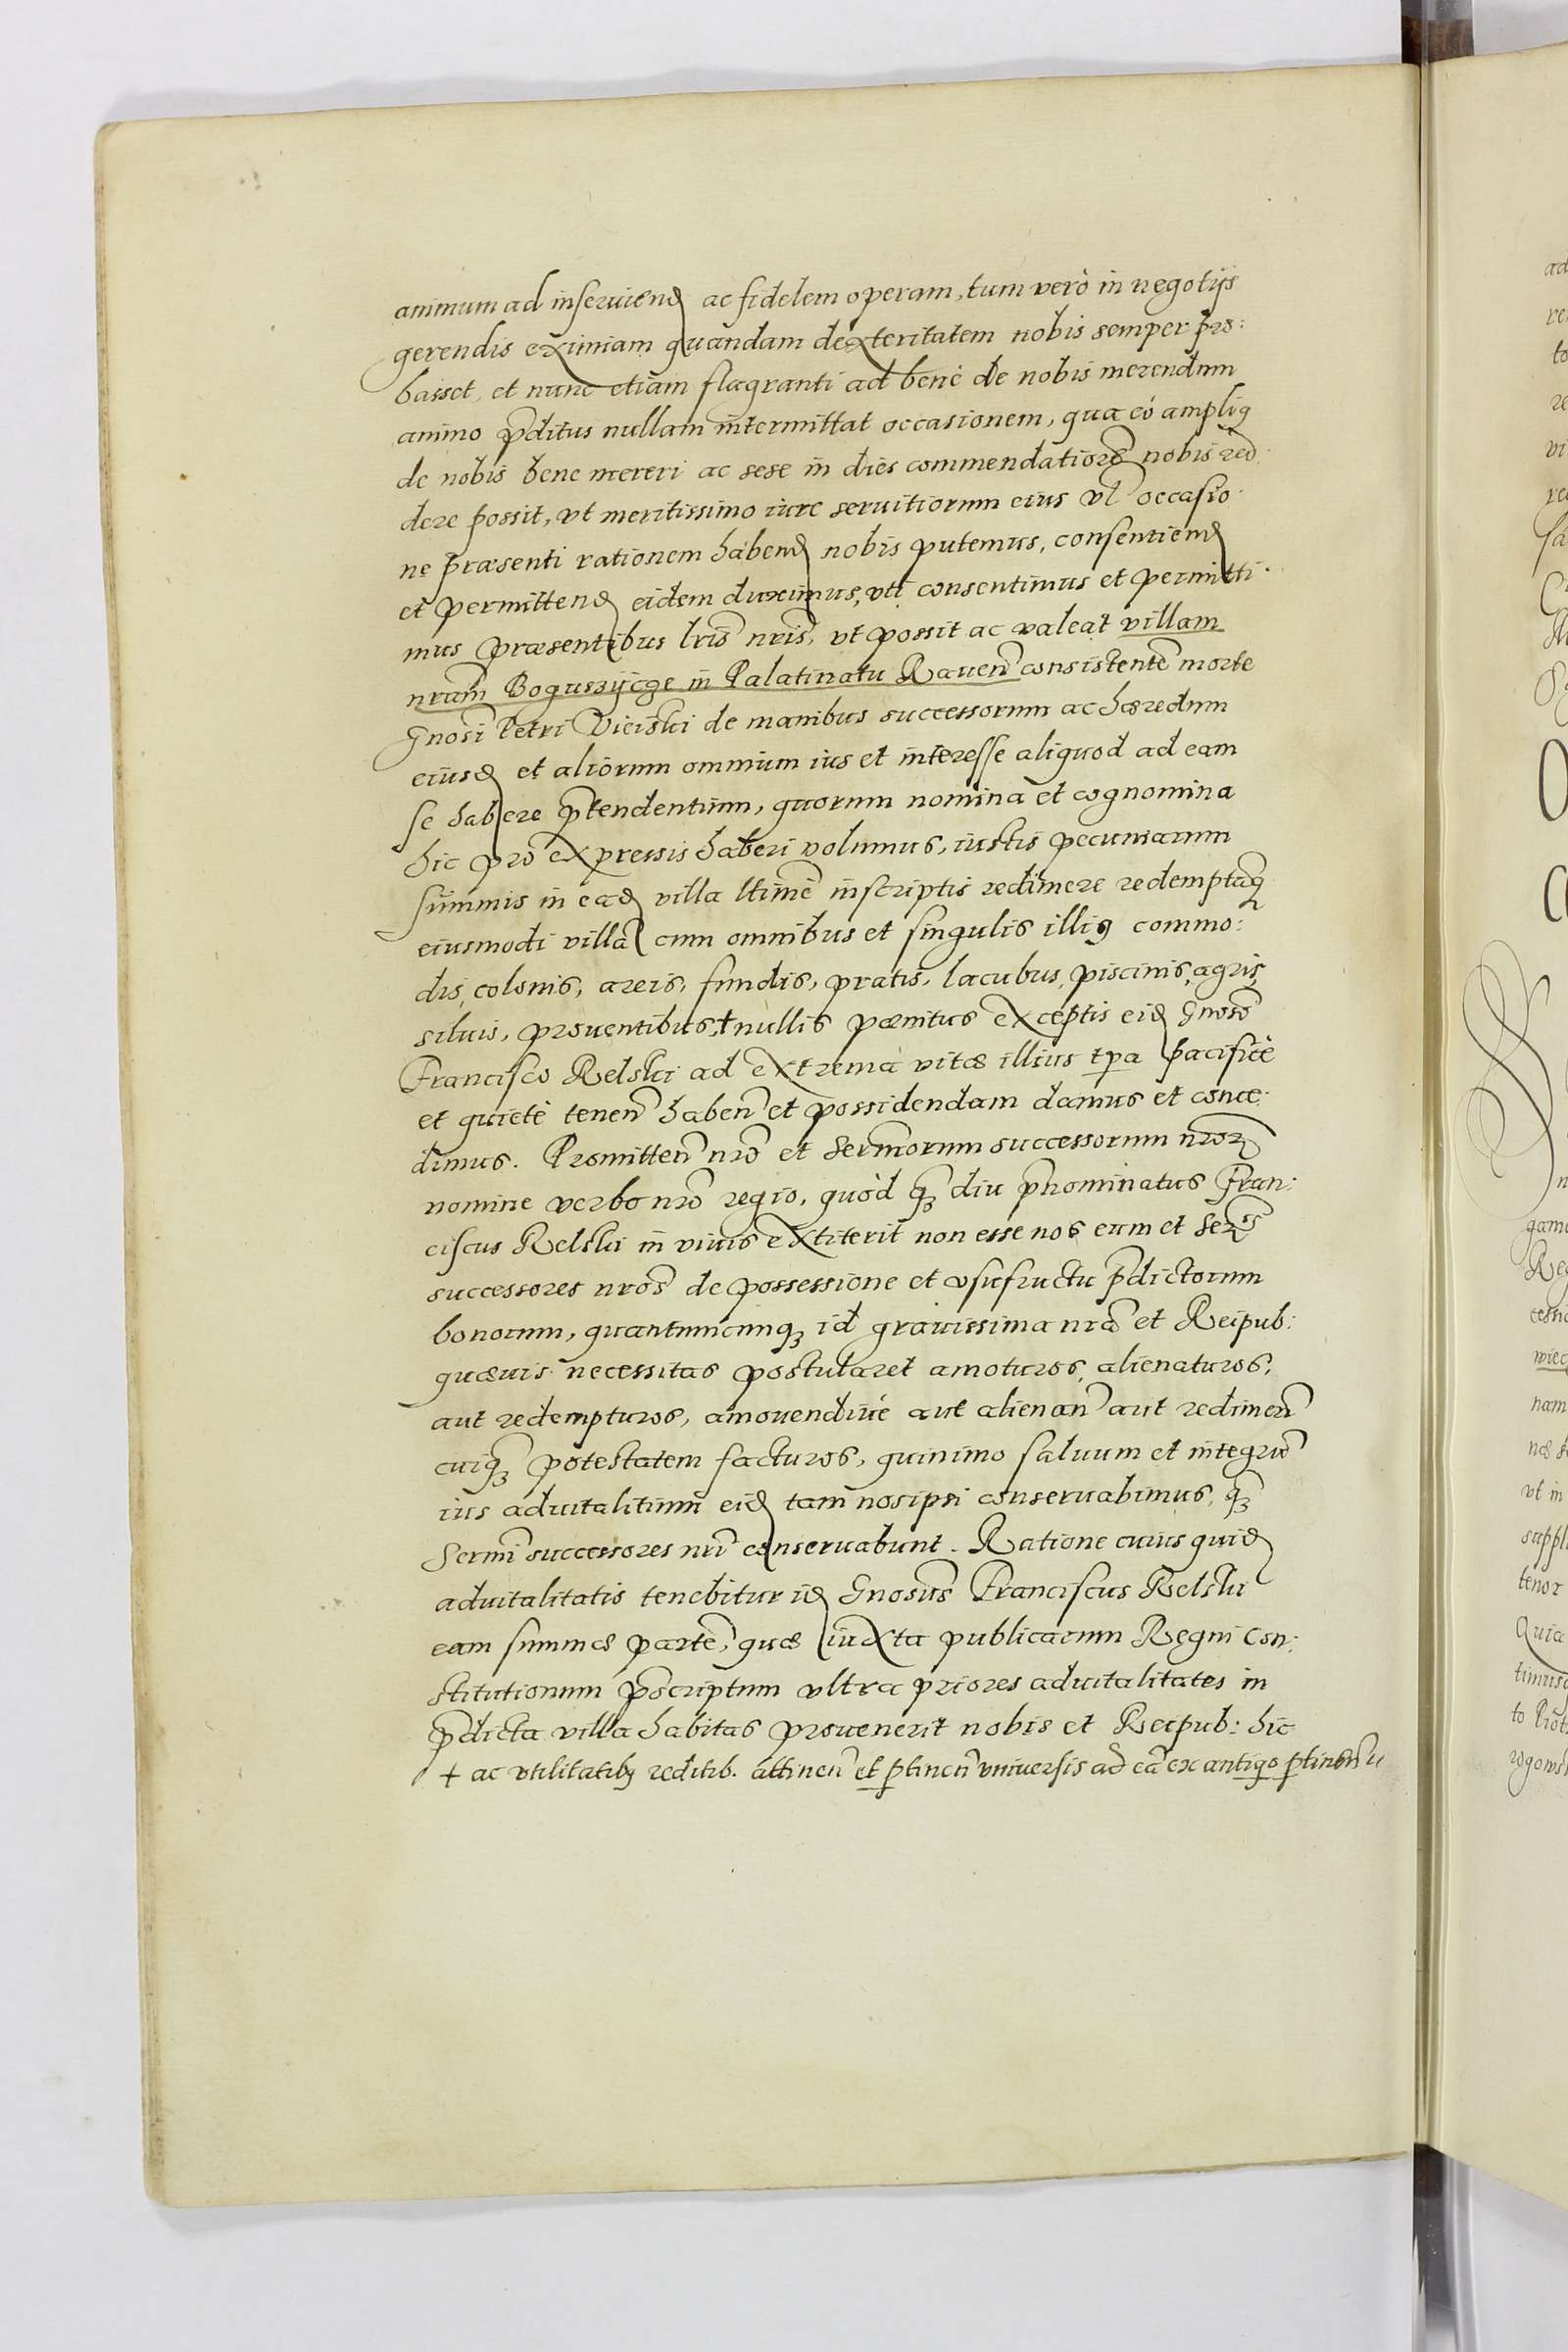 animum ad inseruiend ac fidelem operam, tum verò in negotijs
gerendis eximiam quandam dexteritatem nobis semper pro:
basset, et nunc etiam flagranti ad bene de nobis merendum
animo p̄ditus nullam intermittat occasionem, qua eò ampliꝯ
de nobis bene mereri ac sese in dies commendatiorē nobis red:
dere possit, vt meritissimo iure seruitiorum eius vl̄ occasio:
ne præsenti rationem habend nobis putemus, consentiend
et permittend eidem duximus, vti consentimus et permitti:
mus præsentibus lr̄is nr̄is, vt possit ac valeat villam
nr̄am Boguszijcze in Palatinatu Rauen̄ consistentē morte
Gnosi Petri Viciski de manibus successorum ac hæredum
eiusd et aliorum omnium ius et interesse aliquod ad eam
se habere p̄tendentium, quorum nomina et cognomina
hic pro expressis haberi volumus, iustis pecuniarum
summis in ead villa ltimē inscriptis redimere redemptāqꝫ
eiusmodi villā cum omnibus et singulis illiꝯ commo:
dis, colonis, areis, fundis, pratis, lacubus, piscinis, agris,
siluis, prouentibus,+ nullis pænitus exceptis eid Gnosō
Francisco Relski ad extrema vitæ illius tp̄a pacificè
et quietè tenen̄ haben̄ et possidendam damus et conce:
dimus. Promitten̄ nr̄o et Sermorum successorum nr̄orꝫ
nomine verbo nr̄o regio, quòd qꝫ̄ diu p̄nominatus Fran:
ciscus Relski in viuis extiterit non esse nos eum et Ser̄es
successores nr̄os de possessione et vsufructu p̄dictorum
bonorum, quantumcunqꝫ id grauissima nr̄a et Reipub:
quæuis necessitas postularet amoturos, alienaturos,
aut redempturos, amouendiue aut alienan̄ aut redimen̄
cuiqꝫ potestatem facturos, quinimo saluum et integrū
ius aduitalitium eid tam nosipsi conseruabimus, qꝫ̄
Sermi successores nr̄i conseruabunt. Ratione cuius quid
aduitalitatis tenebitur id Gnosus Franciscus Relski
eam summæ partē, quæ iuxta publicarum Regni Con:
stitutionum p̄scriptum vltra priores aduitalitates in
p̄dicta villa habitas prouenerit nobis et Reipub: hic
+ ac vtilitatibꝫ reditib. attinen̄ et p̄tinen̄ vniuersis ad eā ex antiqo